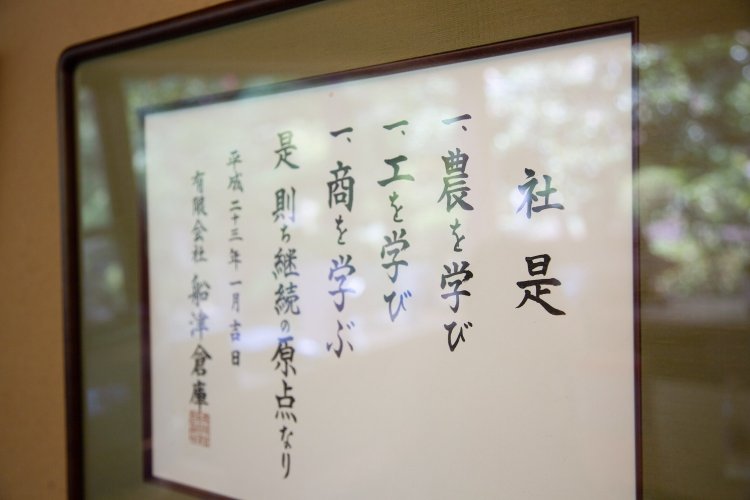 社是
一、農を学び
一、工を学び
一、商を学ぶ
是則ち継続の原点なり
平成二十三年一月吉日
有限会社 船津倉庫